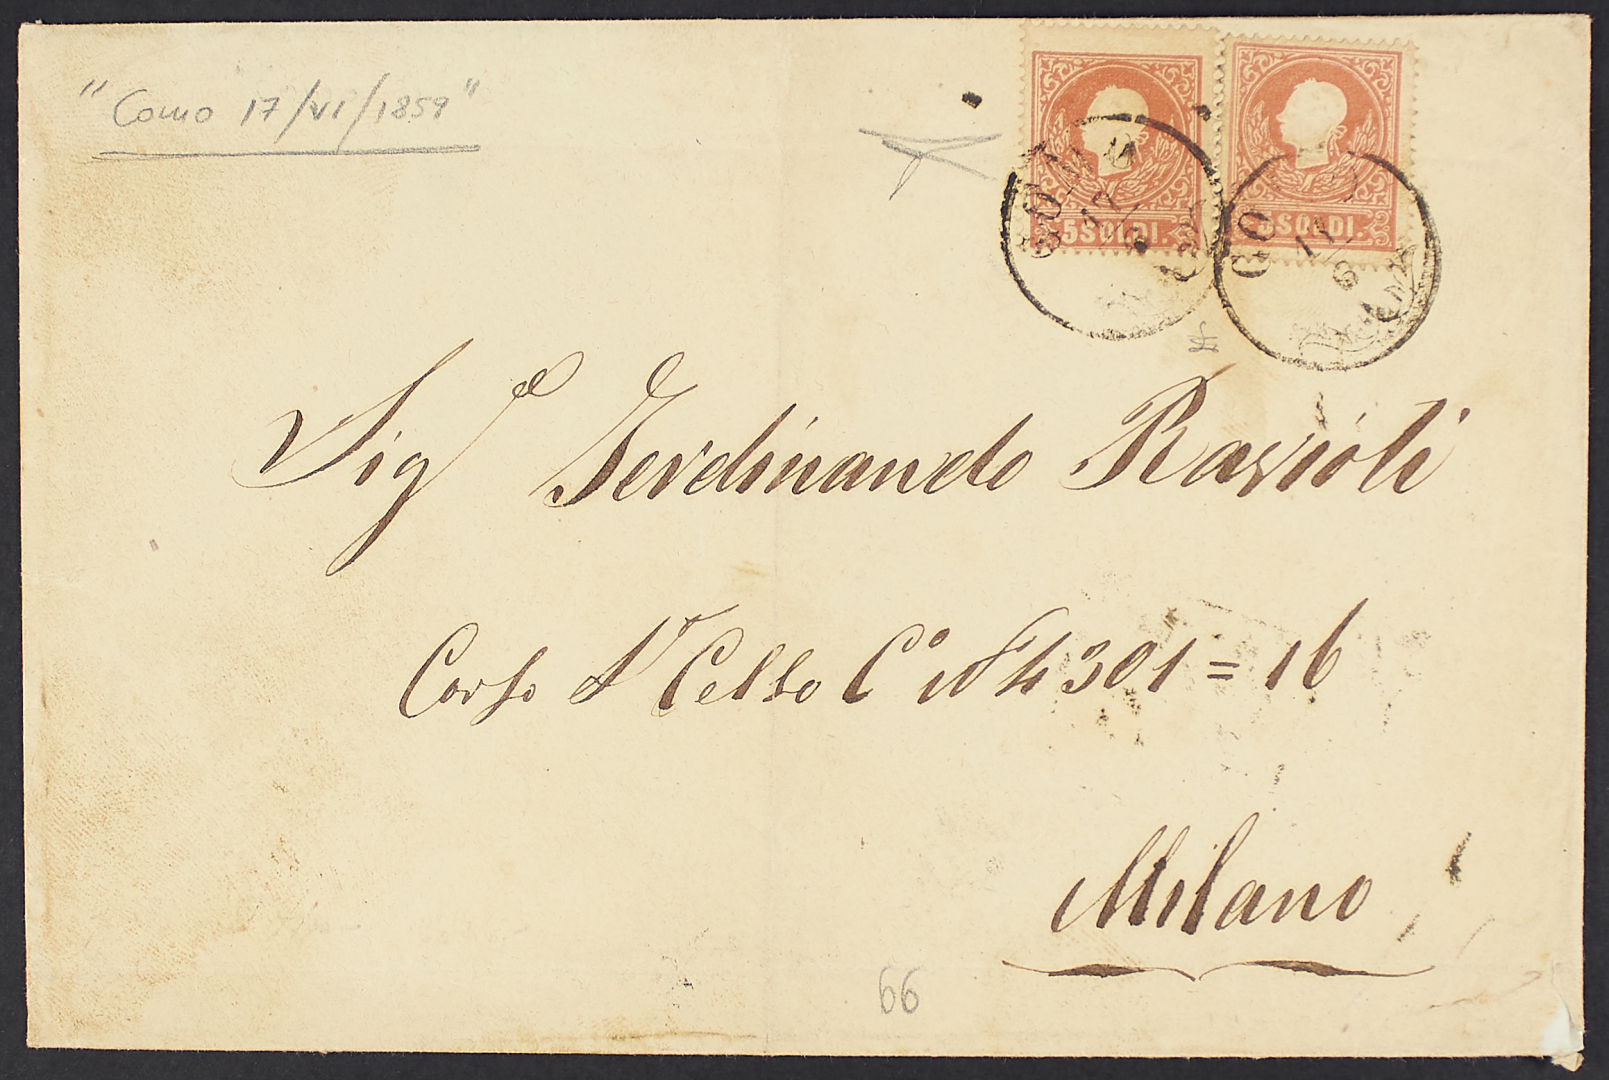 "Como 17/VI/1859"
5 SOLDI.
5 SOLDI.
COMO
17
6
CO
17
6
Sig.e Ferdinando Ravioli
Corso S.n Celso C.o N.o 4301=16
Milano
66